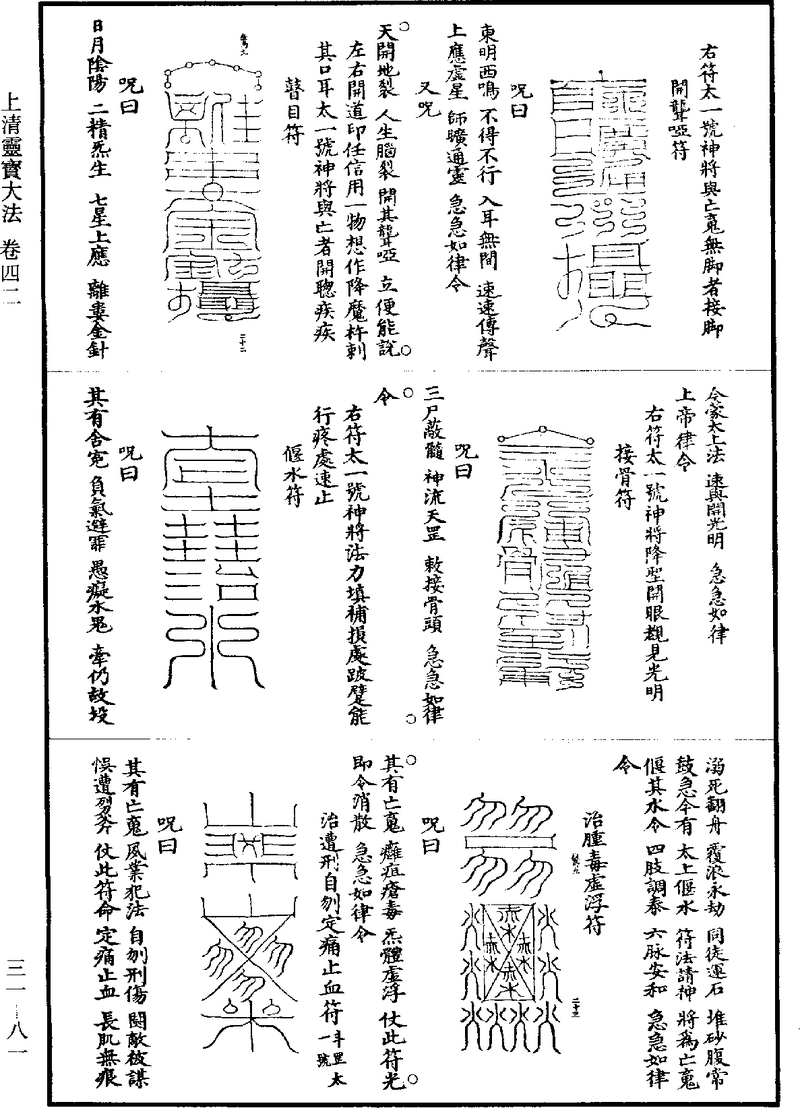 上清靈寶大法 卷四二
三一—八一
右符太一號神將與亡䰟無脚者接脚
開聾啞符
咒曰
東明西鳴 不得不行 入耳無間 速速傳聲
上應虛星 師曠通靈 急急如律令
又咒
天開地裂 人生腦裂 開其聾啞 立便能說
左右開道印任信用一物想作降魔杵刺
其口耳太一號神將與亡者開聰疾疾
瞽目符
咒曰
日月陰陽 二精炁生 七星上應 離婁金針
令家太上法 速與開光明 急急如律
上帝律令
右符太一號神將降聖開眼覩見光明
接骨符
咒曰
三尸蔽髓 神流天罡 敕接骨頭 急急如律
令
右符太一號神將法力填補損處跛躄能
行疼處速止
偃水符
咒曰
其有舍寃 負氣避罪 愚癡水鬼 牽仍故投
溺死翻舟 覆浪永劫 同徒運石 堆砂腹常
鼓急今有 太上偃水 符法請神 將為亡䰟
偃其水令 四肢調泰 六脉安和 急急如律
令
治腫毒虛浮符
咒曰
其有亡䰟 癰疽瘡毒 炁體虛浮 仗此符光
即令消散 急急如律令
治遭刑自刎定痛止血符 斗罡太一號
咒曰
其有亡䰟 風業犯法 自刎刑傷 鬬敵被謀
悮遭 仗此符命 定痛止血 長肌無痕